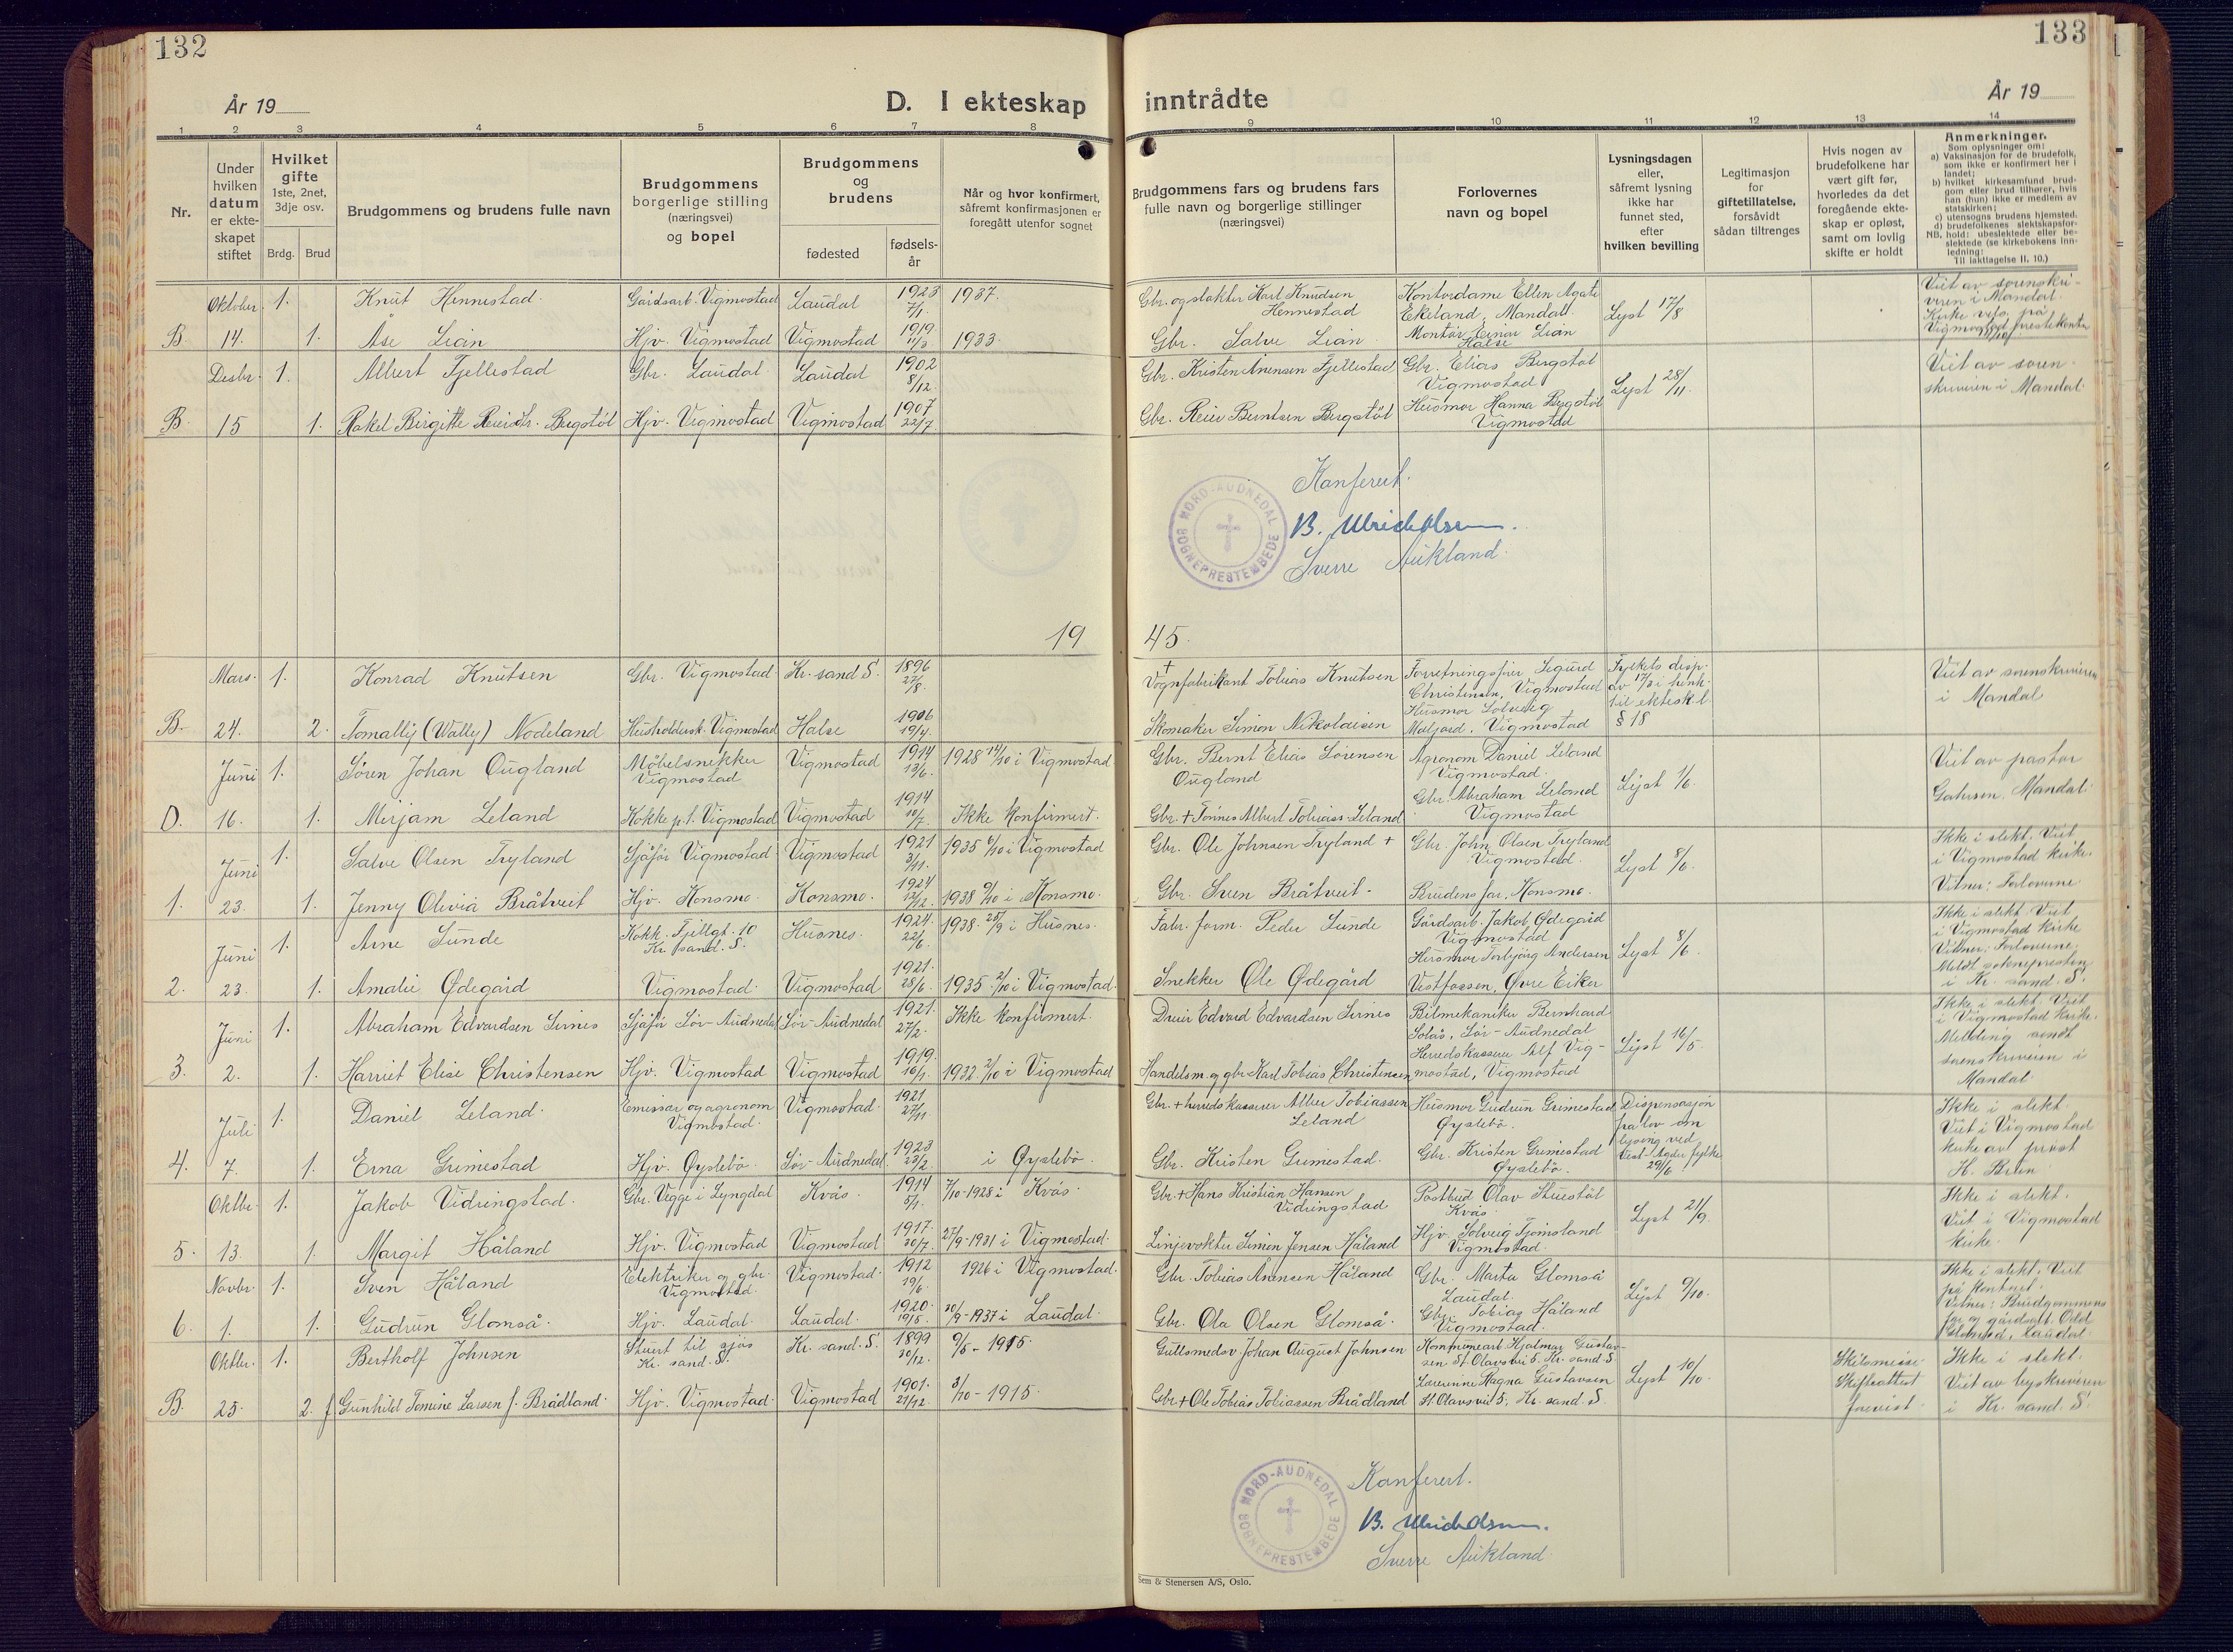 132
133
År 19
D. I ekteskap inntrådte
År 19
1 2 3 4 5 6 7 8 9 10 11 12 13 14
Nr.
Under hvilken datum er ekteskapet stiftet
Hvilket gifte 1ste, 2net, 3dje osv.
Brdg. Brud
Brudgommens og brudens fulle navn
Brudgommens borgerlige stilling (næringsvei) og bopel
Brudgommens og brudens
fødested
fødselsår
Når og hvor konfirmert, såfremt konfirmasjonen er foregått utenfor sognet
Brudgommens fars og brudens fars fulle navn og borgerlige stillinger (næringsvei)
Forlovernes navn og bopel
Lysningsdagen eller, såfremt lysning ikke har funnet sted, efter hvilken bevilling
Legitimasjon for giftetillatelse, forsåvidt sådan tiltrenges
Hvis nogen av brudefolkene har vært gift før, hvorledes da det foregående ekteskap er opløst, samt om lovlig skifte er holdt
Anmerkninger.
Som oplysninger om:
a) Vaksinasjon for de brudefolk, som ikke er konfirmert her i landet;
b) hvilket kirkesamfund brudgom eller brud tilhører, hvis han (hun) ikke er medlem av statskirken;
c) utensogns brudens hjemsted.
d) brudefolkenes slektskapsforhold: ubeslektede eller beslektede (se kirkebokens innledning:
NB.
Til iakttagelse II. 10.)
Oktober 1. Knut Hennestad. Gårdsarb. Vigmostad Laudal 1923 7/1. 1937. Gbr. og slakter Karl Knudsen Hennestad Kontordame Ellen Agate Ekeland, Mandal. Lyst 17/8 Viet av sorenskriveren i Mandal. Kirke vels. på Vigmostad prestekontor
B. 14. 1. Åse Lian Hjv. Vigmostad Vigmostad 1919 11/3 1933. Gbr. Salve Lian. Montør Einar Lian Halse
Desbr. 1. Albert Fjellestad Gbr. Laudal Laudal 1902 8/12. Gbr. Kristen Arensen Fjellestad Gbr. Elias Bergstøl Vigmostad Lyst 28/11. Viet av sorenskriveren i Mandal.
B. 15 1. Rakel Birgitte Reiersdtr. Bergstøl Hjv. Vigmostad Vigmostad 1907 22/7. Gbr. Reier Berntsen Bergstøl Husmor Hanna Bergstøl Vigmostad
NORD-AUDNEDAL SOGNEPRESTEMBEDE
Konferert.
B. Ulricholsen.
Sverre Aukland.
1945.
Mars. 1. Konrad Knutsen Gbr. Vigmostad. Kr.sand S. 1896 27/8. + Vognfabrikant Tobias Knutsen Forretningsfører Sigurd Christensen, Vigmostad Fylkets disp. av 17/3 i henh. til ektesk.l. § 18 Viet av sorenskriveren i Mandal
B. 24. 2. Tomally (Wally) Nodeland Husholdersk. Vigmostad Halse 1906 19/4. Skomaker Simon Nikolaisen Husmor Solveig Meljord. Vigmostad
Juni 1. Søren Johan Øugland Møbelsnekker Vigmostad Vigmostad 1914 13/6. 1928 14/10 i Vigmostad Gbr. Bernt Elias Sørensen Øugland Agronom Daniel Leland Vigmostad. Lyst 1/6. Viet av pastor Gahrsen, Mandal.
D. 16. 1. Mirjam Leland Kokke p.t. Vigmostad Vigmostad 1914 10/7. Ikke konfirmert. Gbr. + Tønnes Albert Tobiass Leland Gbr. Abraham Leland Vigmostad
Juni 1. Salve Olsen Tryland Sjåfør Vigmostad Vigmostad 1921 3/11. 1935 6/10 i Vigmostad Gbr. Ole Johnsen Tryland + Gbr. John Olsen Tryland Vigmostad. Lyst 8/6. Ikke i slekt. Viet i Vigmostad kirke. Vitner: Forloverne
1. 23. 1. Jenny Olivia Bråtveit Hjv. Konsmo. Konsmo. 1924 12/12. 1938 9/10 i Konsmo. Gbr. Sven Bråtveit. Brudens far, Konsmo.
Juni 1. Arne Sunde Kokk. Fjellgt. 10 Kr. sand. S. Husnes. 1924. 22/6. 1938. 25/9 i Husnes. Fabr. form. Peder Sunde Gårdsarb. Jakob Ødegård Vigmostad Lyst 8/6. Ikke i slekt. Viet i Vigmostad kirke Vitner: Forloverne. Meldt soknepresten i Kr. sand. S.
2. 23. 1. Amalie Ødegård Vigmostad. Vigmostad 1921. 28/6. 1935. 2/10 i Vigmostad. Snekker Ole Ødegård Husmor Torbjørg Andersen Vestfossen, Øvre Eiker
Juni 1. Abraham Edvardsen Sirnes Sjåfør Sør-Audnedal Sør-Audnedal 1921. 27/2. Ikke konfirmert. Dreier Edvard Edvardsen Sirnes Bilmekaniker Bernhard Solås, Sør-Audnedal Lyst 16/5. Ikke i slekt. Viet i Vigmostad kirke. Melding sendt sorenskriveren i Mandal.
3. 2. 1. Harriet Elise Christensen Hjv. Vigmostad Vigmostad 1919. 16/1. 1932. 2/10 i Vigmostad Handelsm. og gbr Karl Tobias Christensen Herredskasserer Alf Vigmostad, Vigmostad
Juli 1. Daniel Leland. Emissær og agronom Vigmostad. Vigmostad. 1921 27/11. Gbr. + herredskasserer Alber Tobiassen Leland Husmor Gudrun Grimestad Øyslebø. Dispensasjon fra lov om lysing ved Vest-Agder fylke 29/6. Ikke i slekt. Viet i Vigmostad kirke av prost H. Brun.
4. 7. 1. Erna Grimestad Hjv. Øyslebø. Sør-Audnedal 1923 23/2. i Øyslebø. Gbr. Kristen Grimestad. Gbr. Kristen Grimestad Øyslebø.
Oktbr. 1. Jakob Vidringstad. Gbr. Vegge i Lyngdal Kvås. 1914 5/1. 7/10-1928 i Kvås. Gbr. + Hans Kristian Hansen Vidringstad Postbud Olav Stuestøl Kvås Lyst 21/9. Ikke i slekt. Viet i Vigmostad kirke.
5. 13. 1. Margit Håland Hjv. Vigmostad Vigmostad 1917. 30/7. 27/9-1931 i Vigmostad. Linjevokter Simon Jensen Håland Hjv. Solveig Tjomsland Vigmostad.
Novbr. 1. Sven Håland Elektriker og gbr. Vigmostad. Vigmostad. 1912 19/6 1926 i Vigmostad. Gbr. Tobias Arensen Håland Gbr. Marta Glomså Laudal. Lyst 9/10. Ikke i slekt. Viet på kontoret. Vitner: Brudgommens far og gårdsarb. Odd Glomså, Laudal.
6. 1. 1. Gudrun Glomså. Hjv. Laudal. Laudal. 1920. 19/5. 20/9-1937 i Laudal. Gbr. Ole Olsen Glomså. Gbr. Tobias Håland Vigmostad.
Oktbr. 1. Bertholf Johnsen Stuert til sjøs Kr. sand. S. Kr. sand. S. 1899 20/12. 9/5-1915. Gullsmedsv. Johan August Johnsen Kommunearb. Hjalmar Gustavsen St. Olavsvei 5. Kr. sand. S. Lyst 10/10. Skilsmisse. Skifteattest forevist. Ikke i slekt. Viet av byskriveren i Kr. sand. S.
B. 25. 2. Gunhild Tomine Larsen f. Brådland. Hjv. Vigmostad. Vigmostad 1901. 21/12. 3/10-1915. Gbr. + Ole Tobias Tobiassen Brådland Lærerinne Magna Gustavsen St. Olavsvei 5, Kr. sand. S.
NORD-AUDNEDAL SOGNEPRESTEMBEDE
Konferert.
B. Ulricholsen.
Sverre Aukland.
Sem & Stenersen A/S, Oslo.